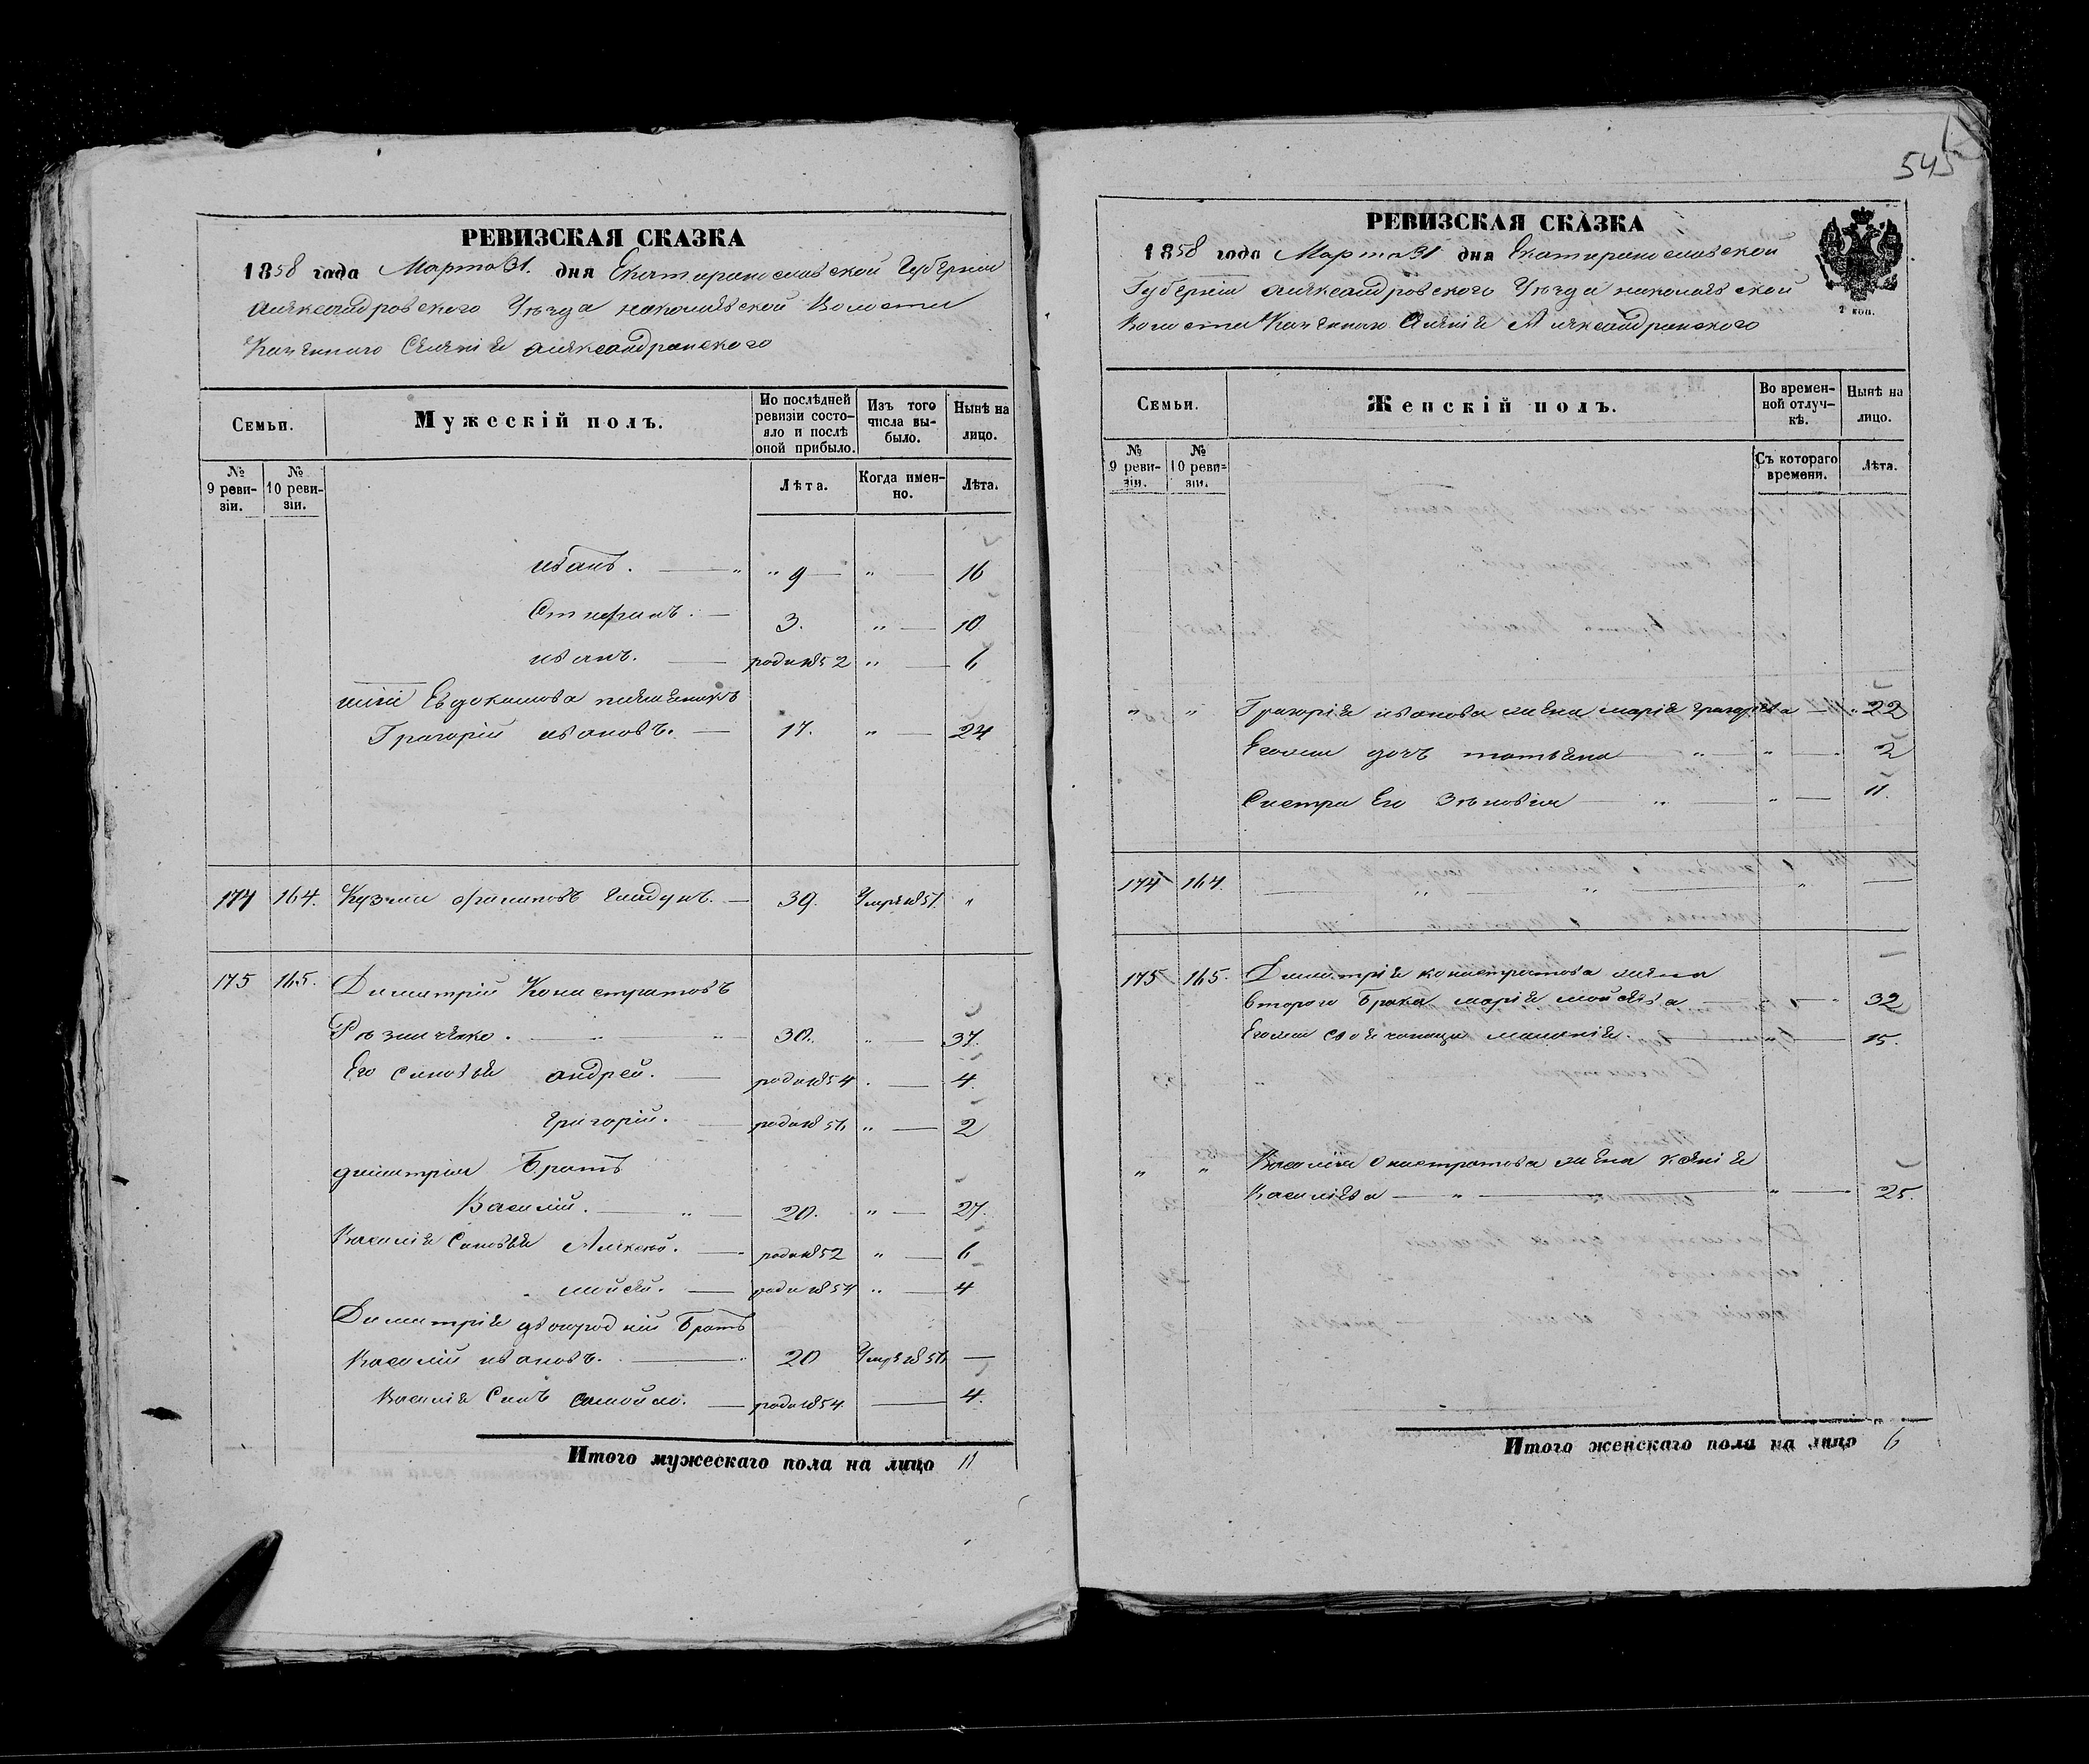 545
РЕВИЗСКАЯ СКАЗКА
1858 года Марта 31. дня Екатеринославской Губернии
Александровского Уезда николаевской Волости
Казенного Селения александровского
Семьи.
Мужескій полъ.
По послѣдней ревизіи состояло и послѣ оной прибыло.
Изъ того числа выбыло.
Нынѣ на лицо.
№ 9 ревизіи.
№ 10 ревизіи.
Лѣта.
Когда именно.
Лѣта.
иванъ. — " " 9 — " — 16
Стефанъ. — 3. " — 10
иванъ. — роди 1852 " — 6
Евдокимова племеникъ
Григорій ивановъ. — 17. " — 24
174 164. Кузма гладунъ. — 39. Умре 1857. "
175 165. Димитрій Конистратовъ
30. " — 37.
Его синовья андрей. — роди 1854 . — 4.
григорій. — роди 1856 " — 2
димитрия Братъ
Василій. — " — 20. " — 27.
Василія Синовья Алексей. — роди 1852 " — 6
мойсей. — роди 1854 " — 4
Димитрія двоюродній Братъ
Василій ивановъ. — " 20 Умре 1856 —
Василія Синъ самойло. — роди 1854 — 4.
Итого мужескаго пола на лицо 11
РЕВИЗСКАЯ СКАЗКА
1858 года Марта 31 дня Екатеринославской
Губерніи александровского Уезда николаевской
Волости Казенного Селения Александровского
2 коп.
Семьи.
Женскій полъ.
Во временной отлучкѣ.
Нынѣ на лицо.
№ 9 ревизіи.
№ 10 ревизіи.
Съ котораго времени.
Лѣта.
" " Григорія иванова жена марія григорева — " 22
Егоже дочъ татьяна — " — " — 2
Систра Его Зѣновія — " — " — 11.
174 164. — " — " —
175 165. Димитрія конистратова жена
второго Брака марія мойсеева — " — " 32
Егоже маланія. — " — 15.
" " Василія онистратова жена ксенія
Василіева — " — " — 25.
Итого женскаго пола на лицо 6